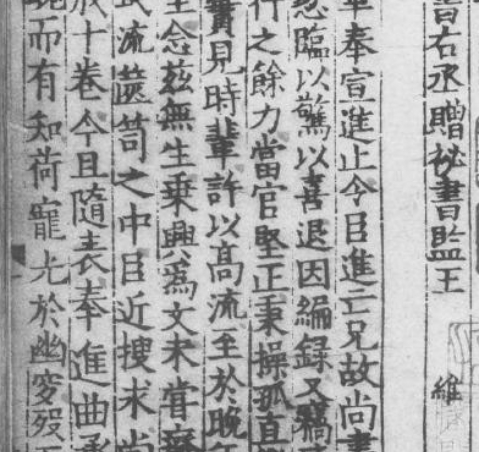 書右丞贈祕書監王 維
奉宣進止令臣進亡兄故尚書
忽臨以驚以喜退因編録又竊
行之餘力當官堅正秉操孤直
實見時輩許以高流至於晚
念兹無生乗興為文未甞廢
流篋笥之中臣近搜求尚
成十卷今且隨表奉進曲承
而有知荷寵光於幽穸歿